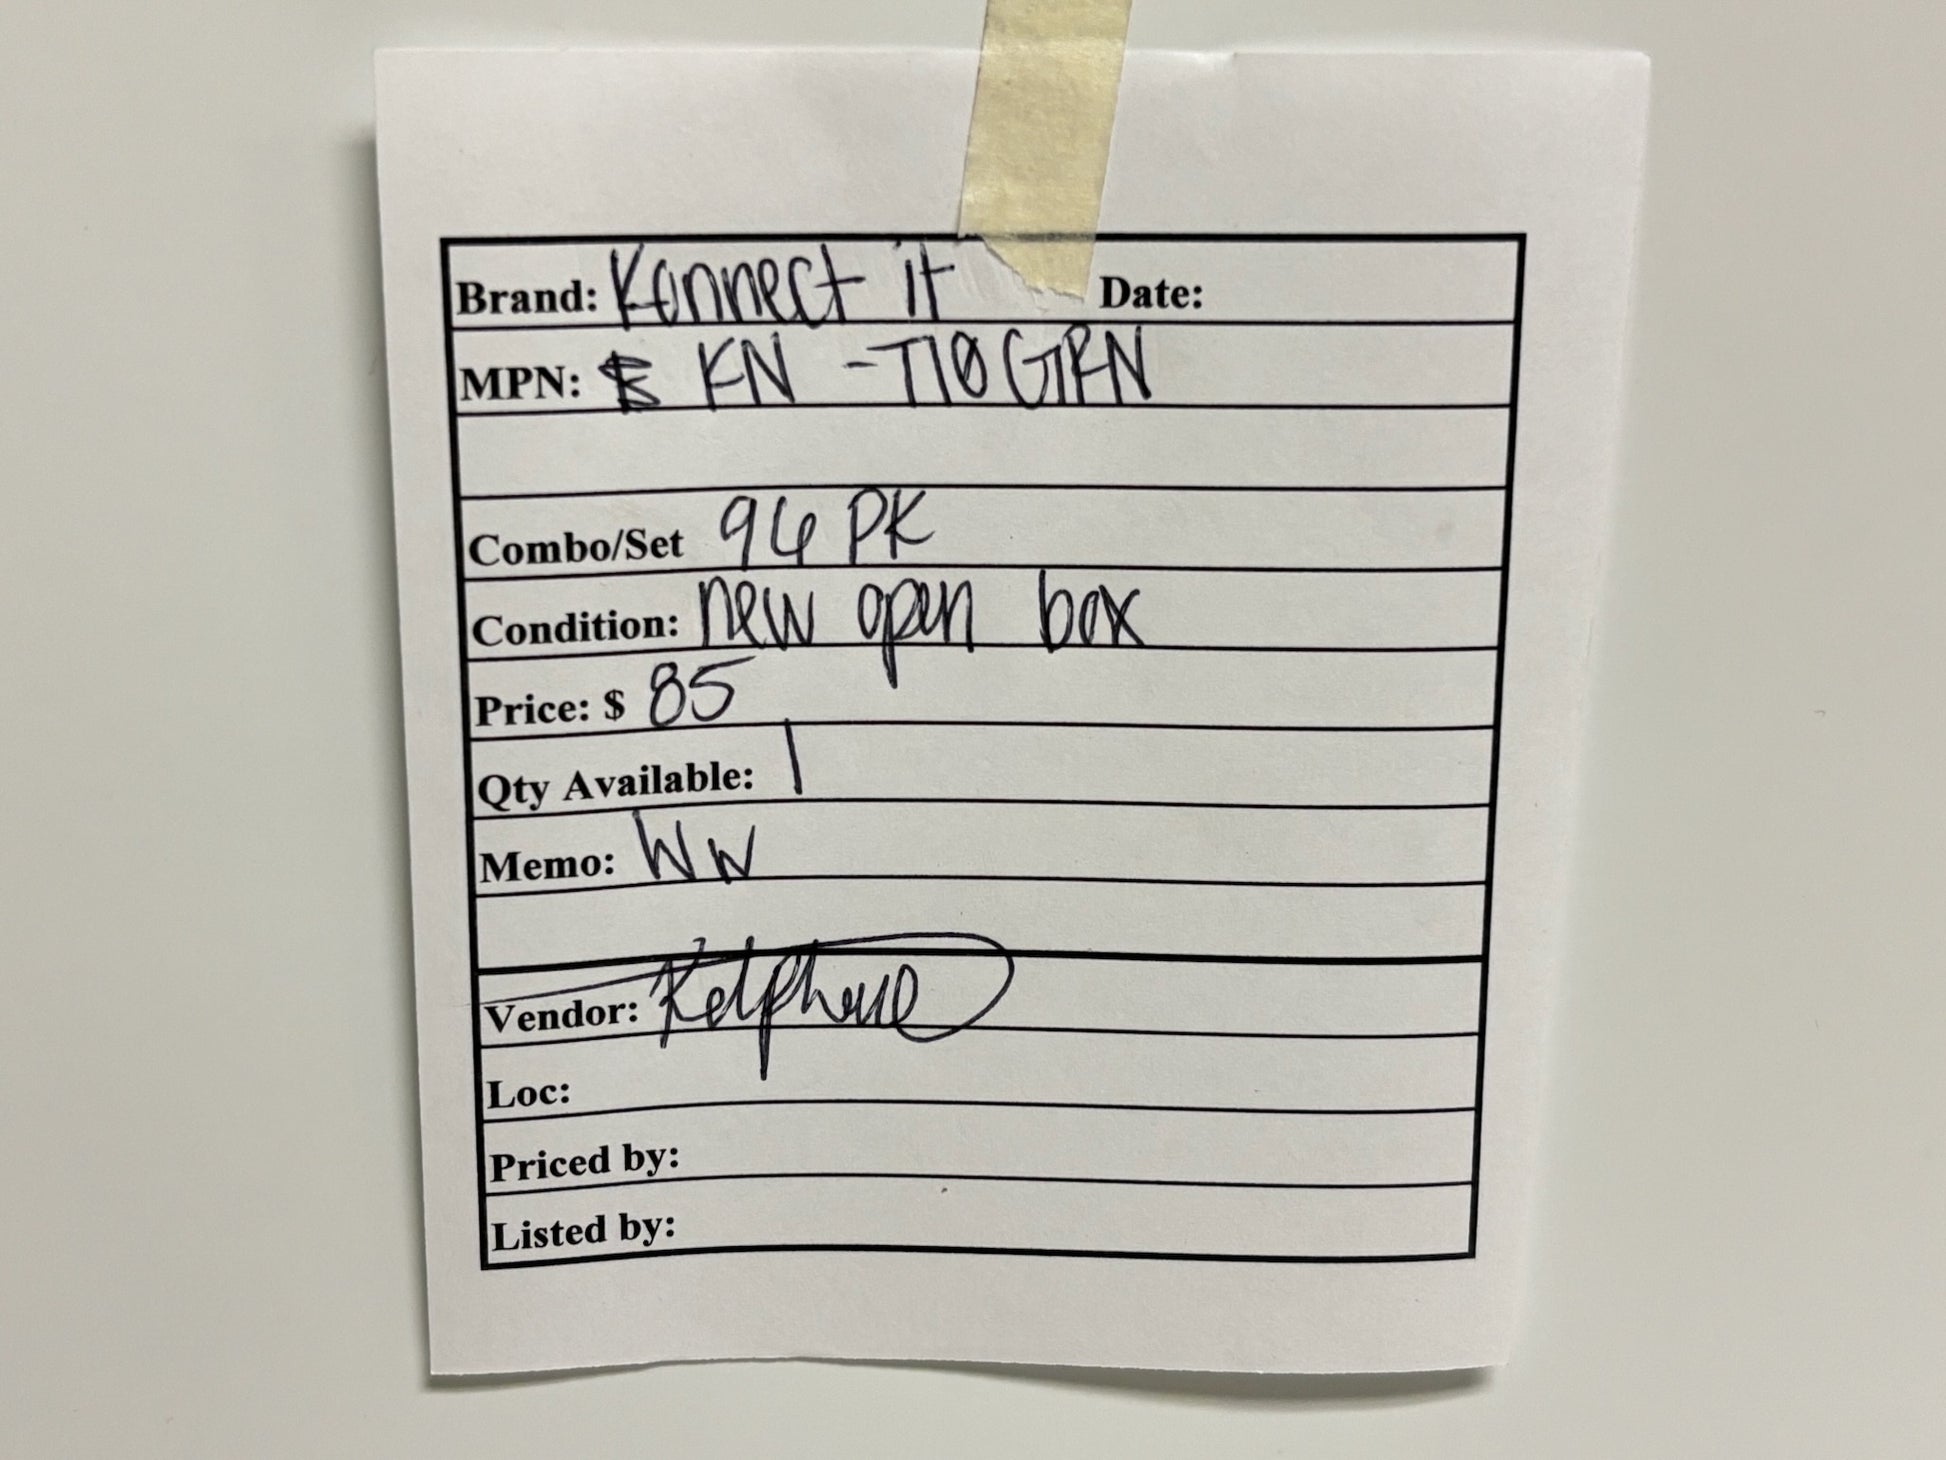 Brand: Konnect it Date:
MPN: KN -T10GRN
Combo/Set 96 PK
Condition: new open box
Price: $ 85
Qty Available: 1
Memo: WW
Vendor:
Loc:
Priced by:
Listed by: